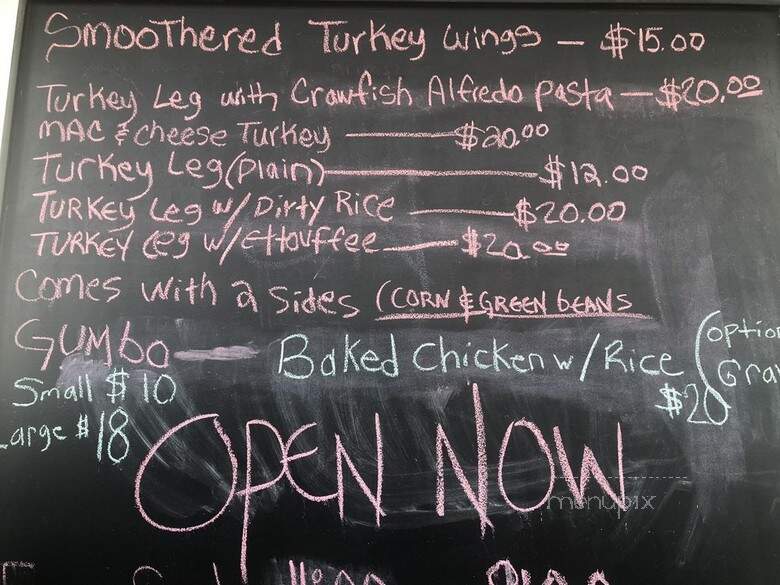 Smoothered Turkey wings – $15.00
Turkey Leg with Crawfish Alfredo pasta – $20.00
MAC & cheese Turkey — $20.00
Turkey Leg (Plain) — $12.00
TURKEY Leg w/ Dirty Rice — $20.00
TURKEY Leg w/ Ettouffee — $20.00
Comes with 2 Sides (CORN & GREEN beANS
GUMbo — Baked Chicken w/ Rice (optio
Small $10 $20 Gra
Large $18
OPEN NOW
menupix